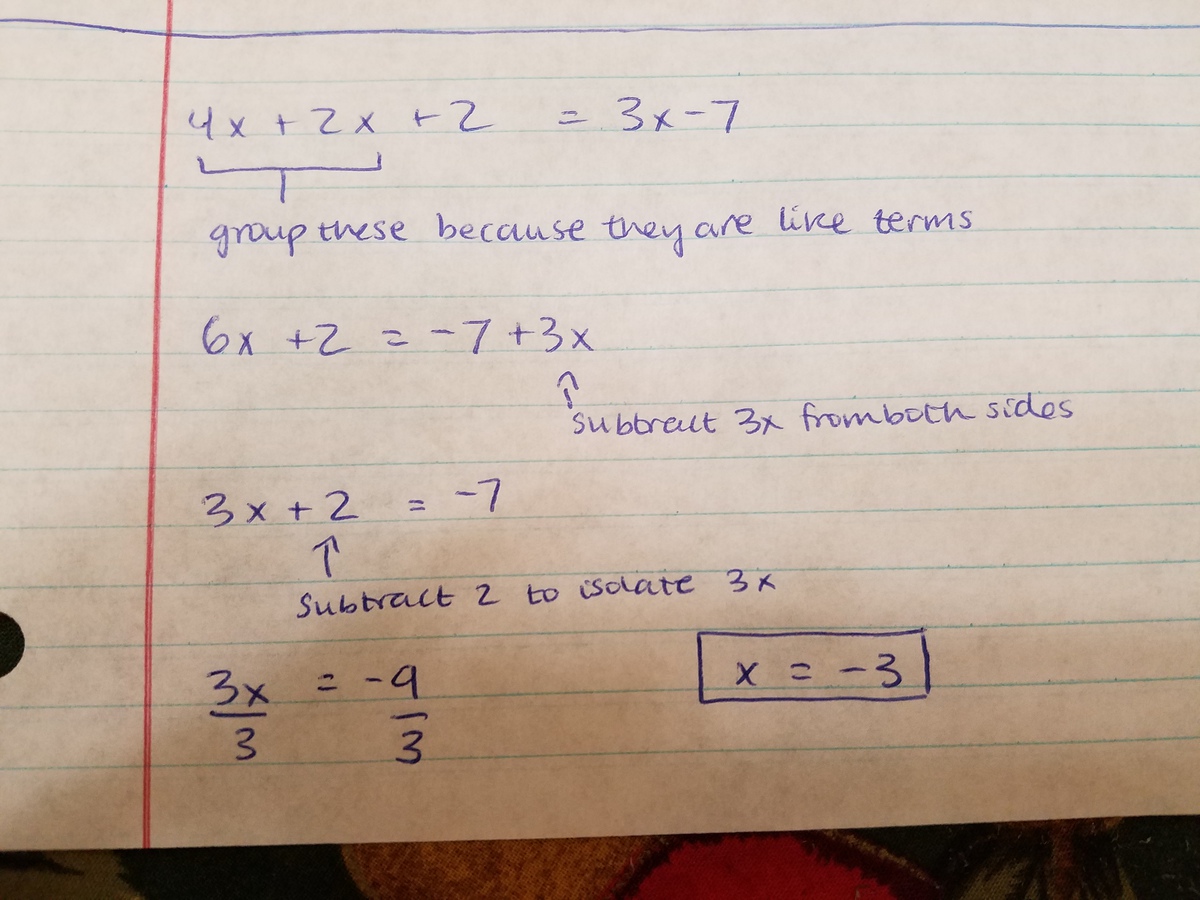 4x + 2x + 2 = 3x - 7
group these because they are like terms
6x + 2 = -7 + 3x
↑
subtract 3x from both sides
3x + 2 = -7
↑
subtract 2 to isolate 3x
3x/3 = -9/3
x = -3